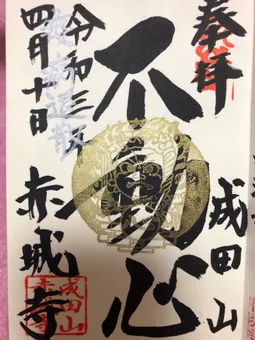 奉拝
成田山
不動心
令和三
疫病退散
四月十日
赤城寺
成田山
赤城寺